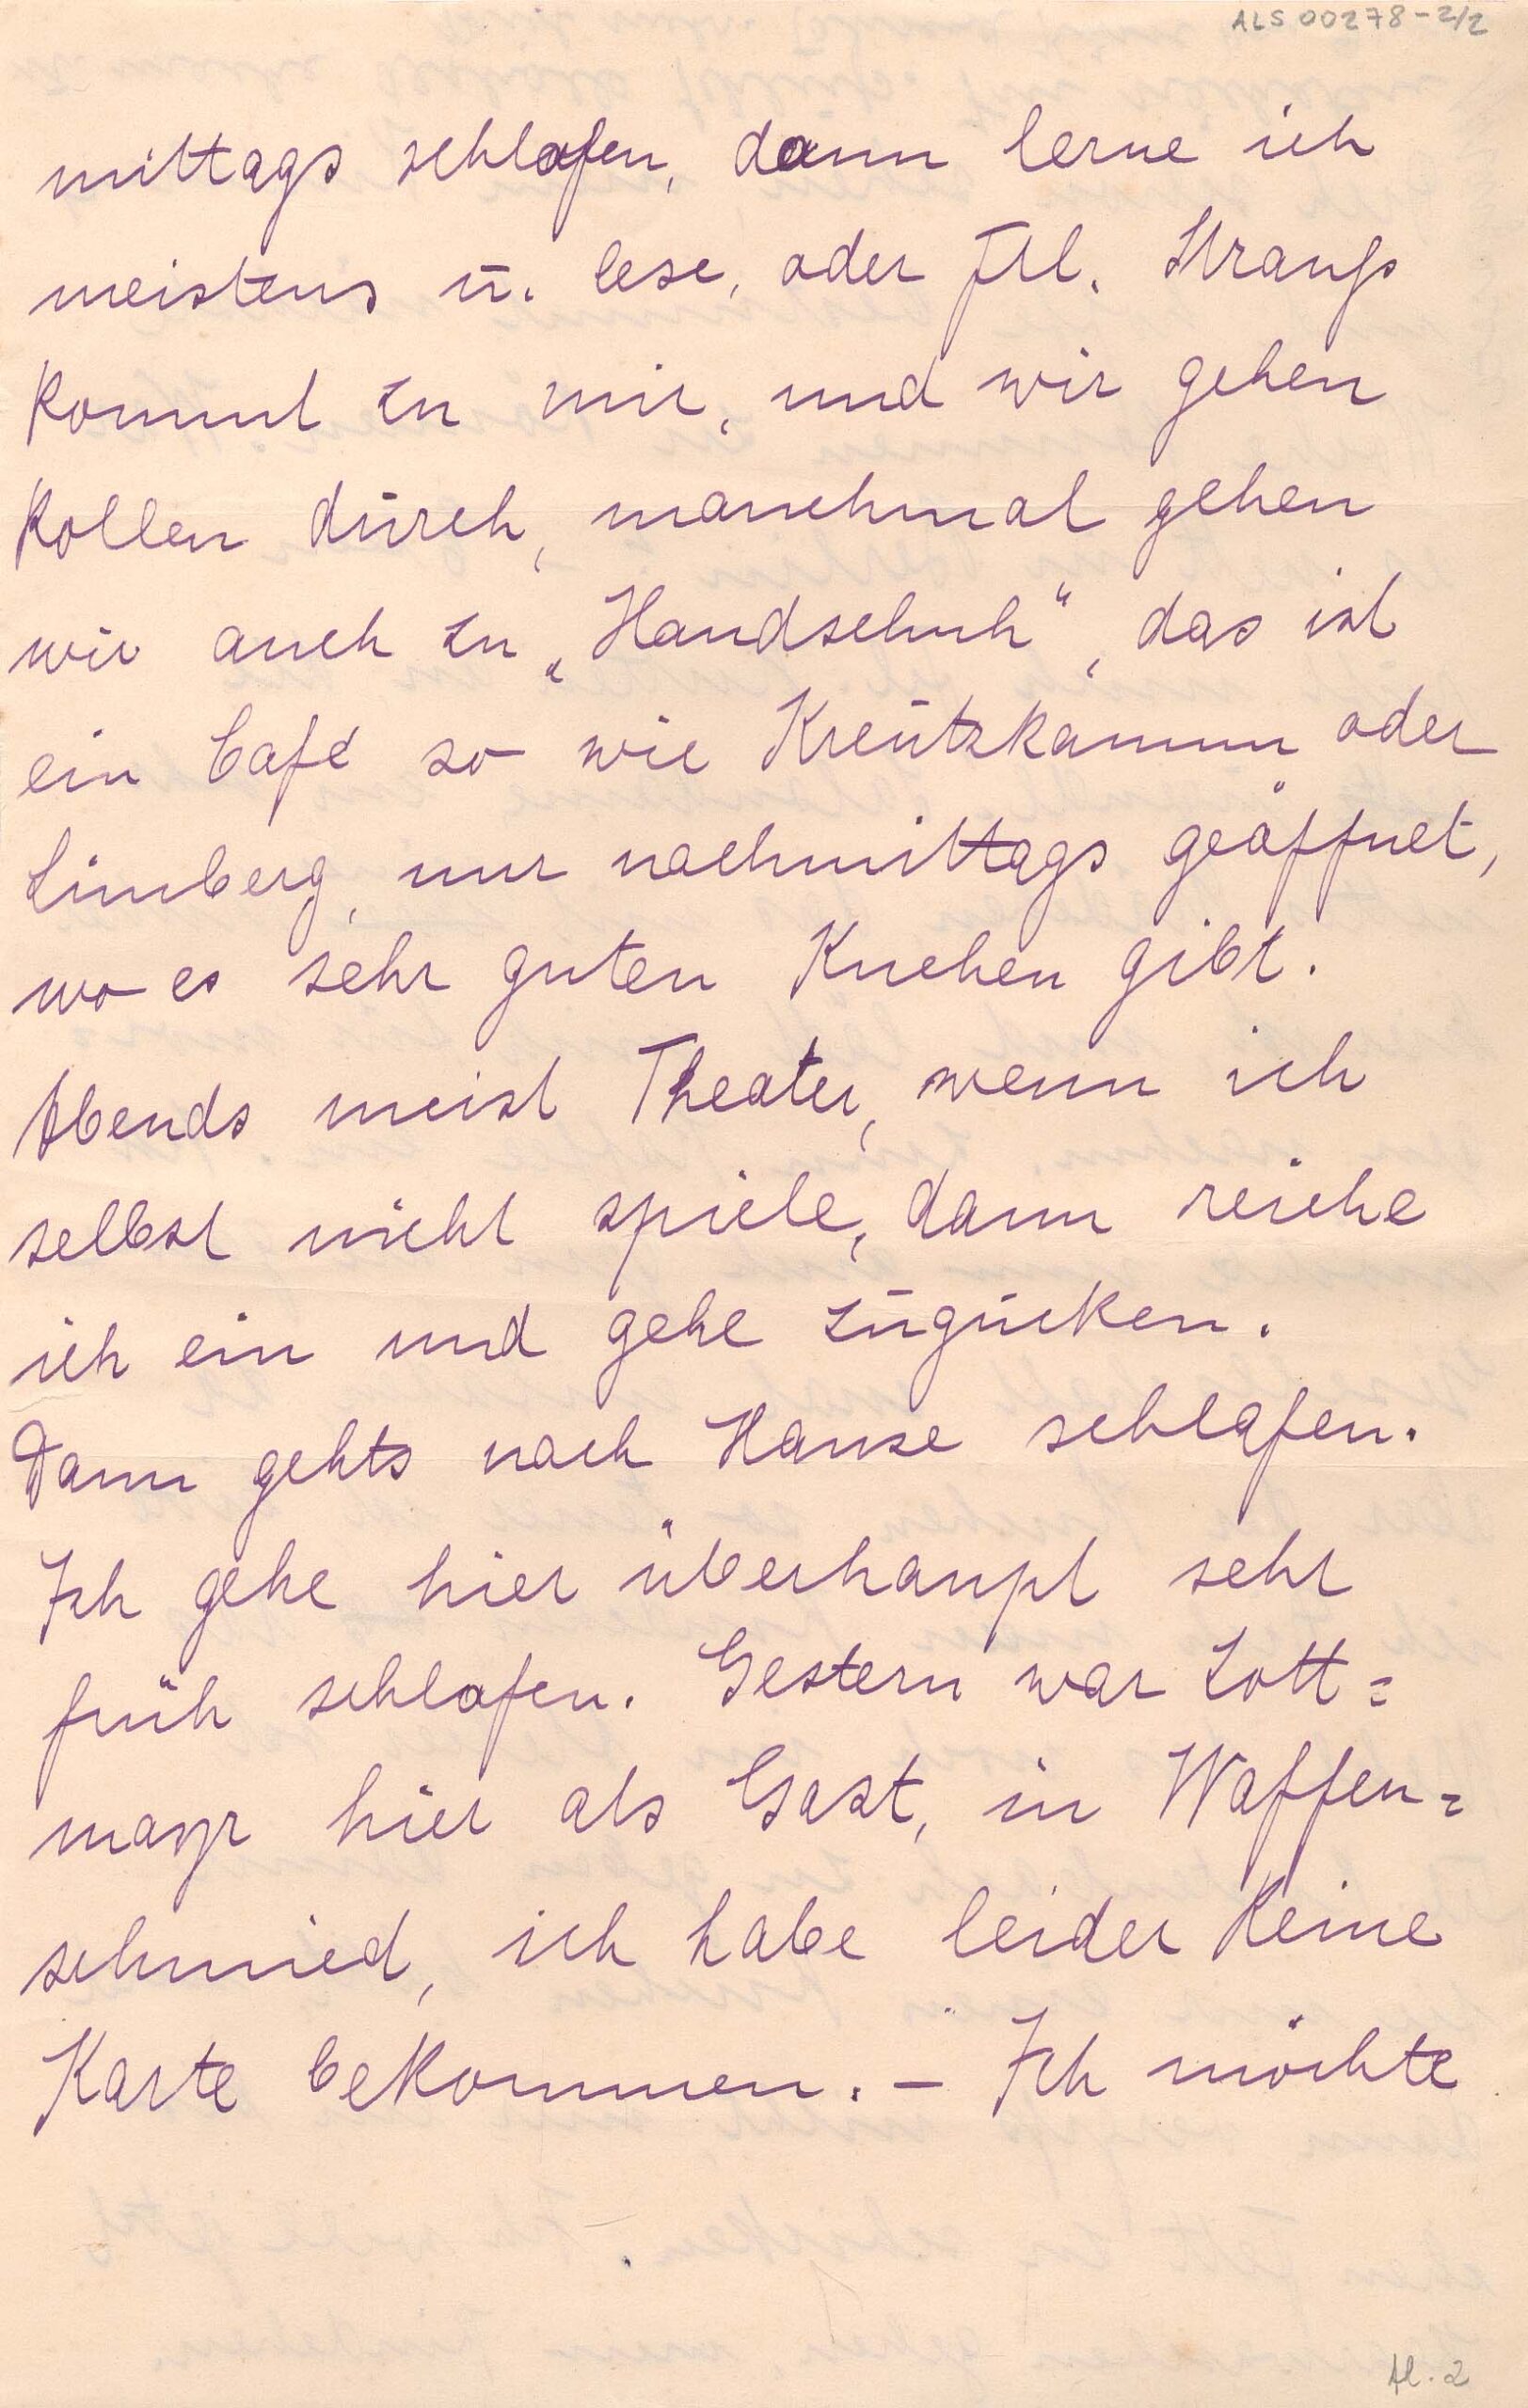 ALS 00278-2/2
mittags schlafen, dann lerne ich
meistens u. lese, oder Frl. Strauß
kommt zu mir, und wir gehen
Rollen durch, manchmal gehen
wir auch zu „Handschuh“, das ist
ein Café so wie Kreutzkamm oder
Limberg, nur nachmittags geöffnet,
wo es sehr guten Kuchen gibt.
Abends meist Theater, wenn ich
selbst nicht spiele, dann reiche
ich ein und gehe zugucken.
Dann gehts nach Hause schlafen.
Ich gehe hier überhaupt sehr
früh schlafen. Gestern war Lott=
mayr hier als Gast, in Waffen=
schmied, ich habe leider keine
Karte bekommen. – Ich möchte
Al. 2